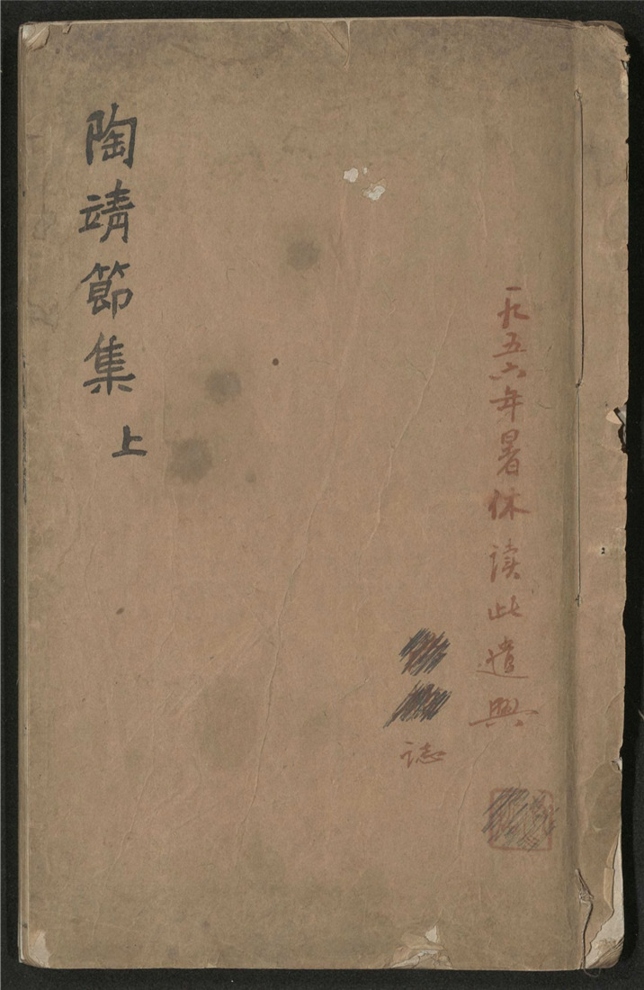 一九五六年暑休读此遣興
誌
陶靖節集 上